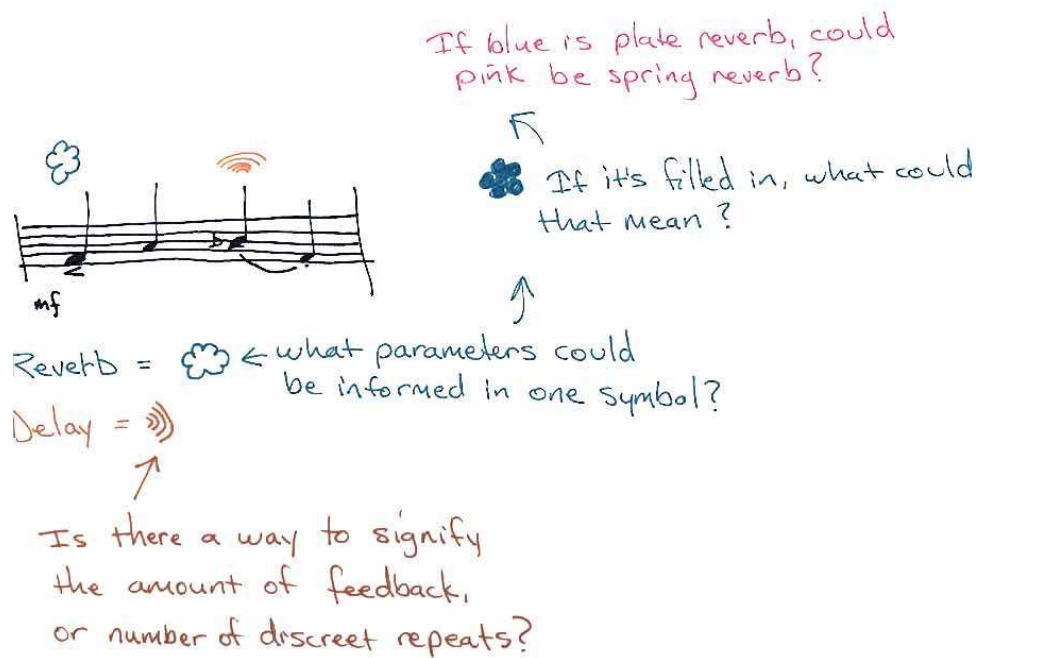 If blue is plate reverb, could
pink be spring reverb?
If it's filled in, what could
that mean?
mf
Reverb = ← what parameters could
be informed in one symbol?
Delay =
Is there a way to signify
the amount of feedback,
or number of discreet repeats?